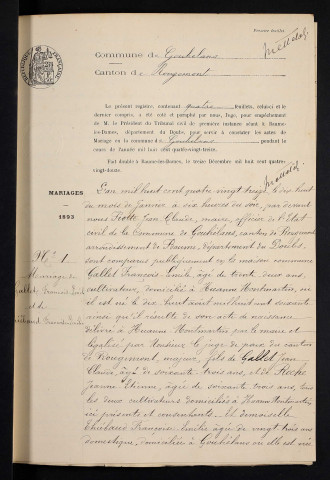 Feuille double
Commune de Goubelans
Canton de Rougemont
Le présent registre, contenant quatre feuillets, celui-ci et le
dernier compris, a été coté et paraphé par nous, Juge, pour empêchement
de M. le Président du Tribunal civil de première instance séant à Baume-
les-Dames, département du Doubs, pour servir à constater les actes de
Mariage en la commune de Goubelans pendant le
cours de l'année mil huit cent quatre-vingt-treize.
Fait double à Baume-les-Dames, le treize Décembre mil huit cent
quatre-vingt-douze.
MARIAGES
1893
N° 1
Mariage de
Gallet François Emile
et de
Françoise Emilie
L'an mil huit cent quatre vingt treize le dix huit
du mois de Janvier à six heures du soir, par devant
nous Jean Claude, maire, officier de l'Etat
civil de la Commune de Goubelans, canton de Rougemont
arrondissement de Baume, département du Doubs,
sont comparus publiquement en la maison commune
Gallet François Emile âgé de trente deux ans,
cultivateur, domicilié à Huanne Montmartin, où
il est né le dix huit mil huit cent soixante
ainsi qu'il résulte de son acte de naissance
délivré à Huanne Montmartin par le maire et
légalisé par Monsieur le juge de paix du canton
de Rougemont, majeur, fils de Gallet Jean
Claude, âgé de soixante trois ans, et de Roche
Jeanne Etienne, âgée de soixante trois ans, tous
les deux cultivateurs domiciliés à Huanne Montmartin,
ici présents et consentants. Et demoiselle
Françoise Emilie âgée de vingt trois ans
domestique, domiciliée à Goubelans où elle est née